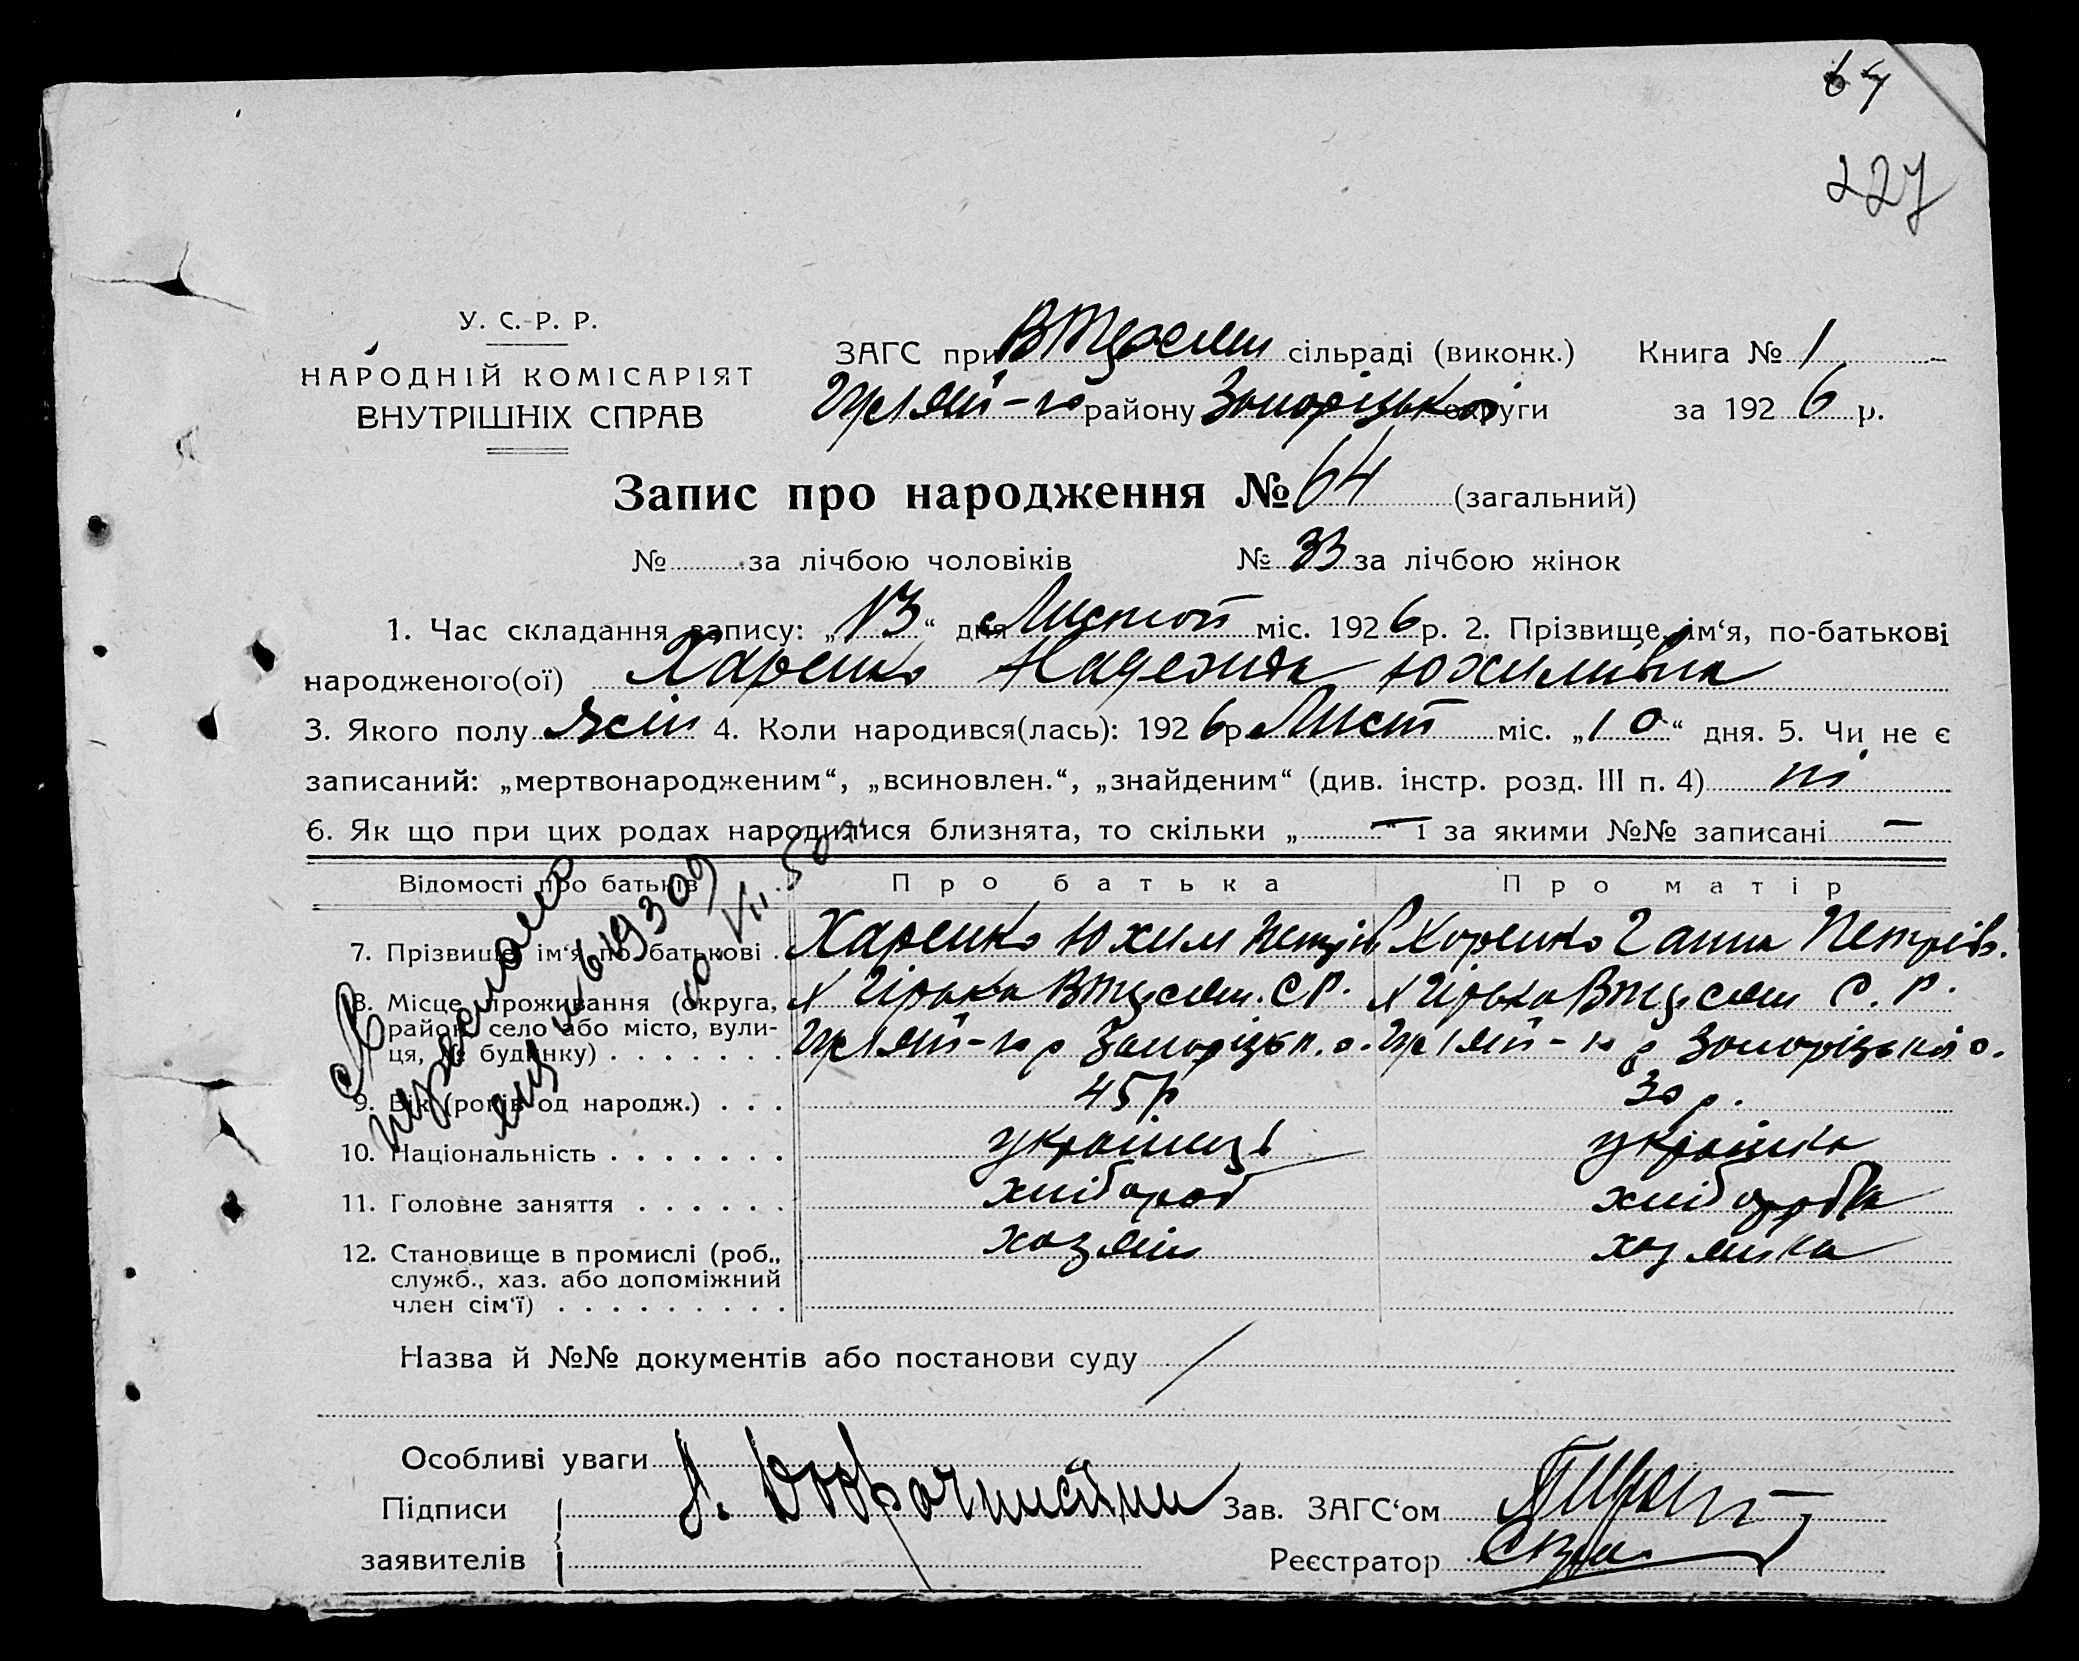 64
227
У. С. Р. Р.
НАРОДНІЙ КОМІСАРІЯТ
ВНУТРІШНІХ СПРАВ
ЗАГС при сільраді (виконк.) Книга № 1
Гуляй-п району Запоріцької округи за 1926 р.
Запис про народження № 64 (загальний)
№ за лічбою чоловіків № 33 за лічбою жінок
1. Час складання запису: „13“ дня Листоп міс. 1926 р. 2. Прізвище, ім‘я, по-батькові
народженого(ої) Харенко Надежда Юхимівна
3. Якого полу жін 4. Коли народився(лась): 1926 р Лист міс. „10“ дня. 5. Чи не є
записаний: „мертвонародженим“, „всиновлен.“, „знайденим“ (див. інстр. розд. III п. 4) ні
6. Як що при цих родах народилися близнята, то скільки „—“ і за якими №№ записані —
Відомості про батьків Про батька Про матір
7. Прізвище ім‘я по батькові . Харенко Юхим Петрів Харенко Ганна Петрів.
8. Місце проживання (округа,
район, село або місто, вули-
ця, № будинку) . . . . . . . Гуляй-п р Запоріцьк. о. Гуляй-п р Запоріцької о.
9. Вік (років од народж.) . . . 45 р 30 р.
10. Національність . . . . . . . українець українка
11. Головне заняття . . . . . . хлібороб хліборобка
12. Становище в промислі (роб., хазяїн хазяйка
служб., хаз. або допоміжний
член сім‘ї) . . . . . . . . .
Назва й №№ документів або постанови суду
Особливі уваги
Підписи Зав. ЗАГС‘ом
заявителів Реєстратор